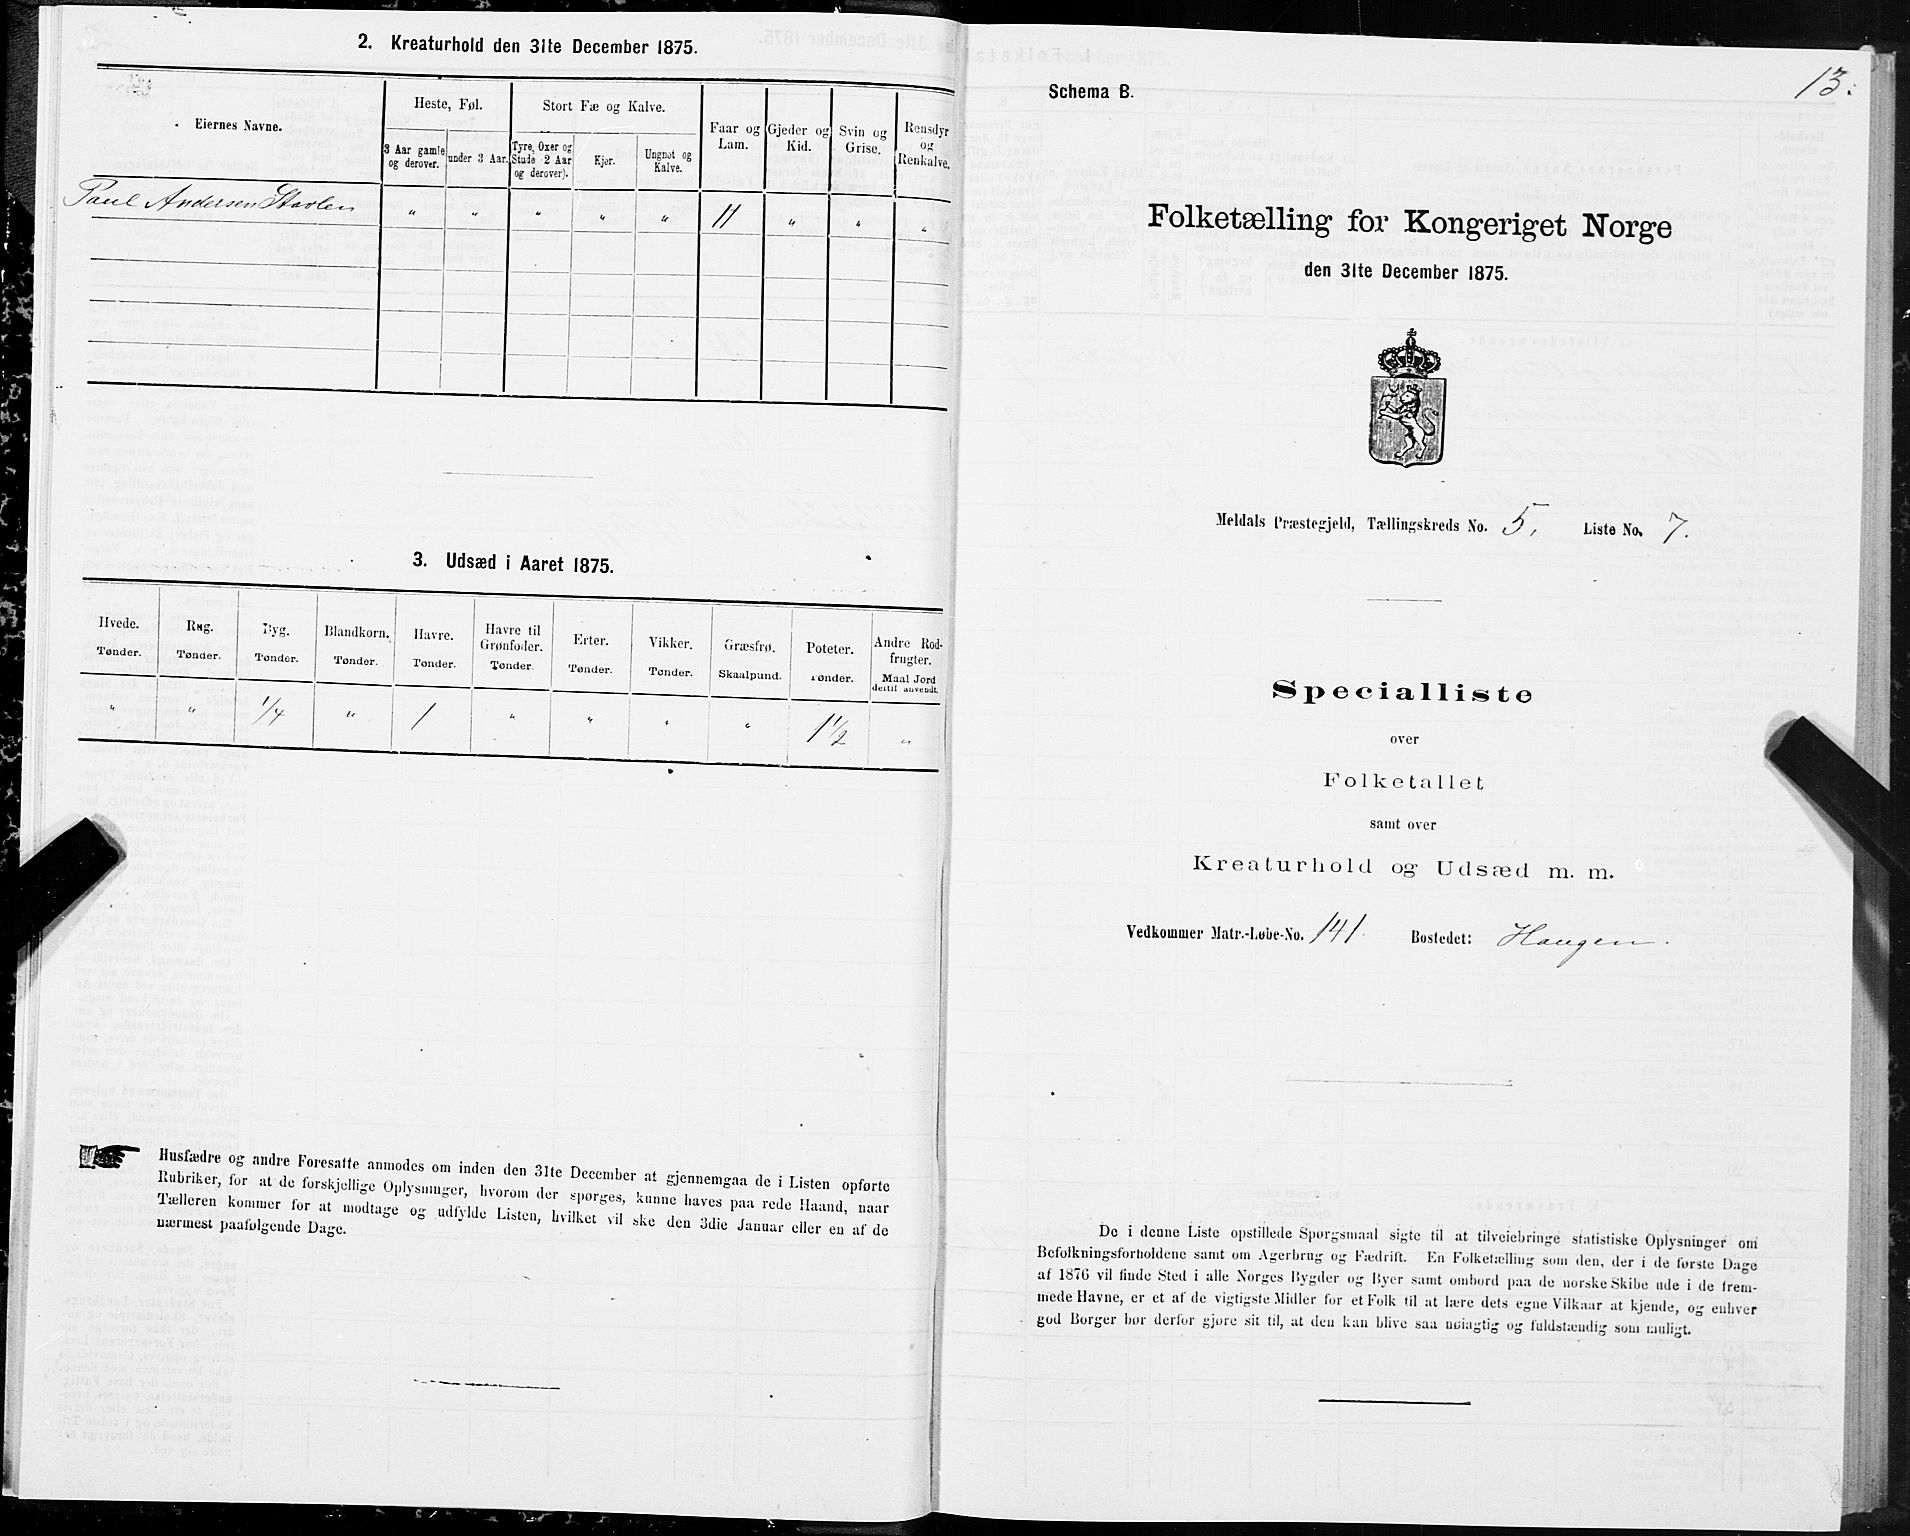 2. Kreaturhold den 31te December 1875.
Eiernes Navne.
Heste, Føl.
Stort Fæ og Kalve.
Faar og Lam.
Gjeder og Kid.
Svin og Grise.
Rensdyr og Renkalve.
3 Aar gamle og derover.
under 3 Aar.
Tyre, Oxer og Stude 2 Aar og derover).
Kjør.
Ungnøt og Kalve.
Paul Andersen " " " " " 11 " " "
3. Udsæd i Aaret 1875.
Hvede. Rug. Byg. Blandkorn. Havre. Havre til Grønfoder. Erter. Vikker. Græsfrø. Poteter. Andre Rodfrugter.
Tønder. Tønder. Tønder. Tønder. Tønder. Tønder. Tønder. Tønder. Skaalpund. Tønder. Maal Jord dertil anvendt.
" " 1/4 " 1 " " " " 1 1/2 "
Husfædre og andre Foresatte anmodes om inden den 31te December at gjennemgaa de i Listen opførte
Rubriker, for at de forskjellige Oplysninger, hvorom der spørges, kunne haves paa rede Haand, naar
Tælleren kommer for at modtage og udfylde Listen, hvilket vil ske den 3die Januar eller en af de
nærmest paafølgende Dage.
13.
Schema B.
Folketælling for Kongeriget Norge
den 31te December 1875.
Meldals Præstegjeld, Tællingskreds No. 5. Liste No. 7.
Specialliste
over
Folketallet
samt over
Kreaturhold og Udsæd m. m.
Vedkommer Matr.-Løbe-No. 141. Bostedet: Haugen.
De i denne Liste opstillede Spørgsmaal sigte til at tilveiebringe statistiske Oplysninger om
Befolkningsforholdene samt om Agerbrug og Fædrift. En Folketælling som den, der i de første Dage
af 1876 vil finde Sted i alle Norges Bygder og Byer samt ombord paa de norske Skibe ude i de frem-
mede Havne, er et af de vigtigste Midler for et Folk til at lære dets egne Vilkaar at kjende, og enhver
god Borger bør derfor gjøre sit til, at den kan blive saa nøiagtig og fuldstændig som muligt.